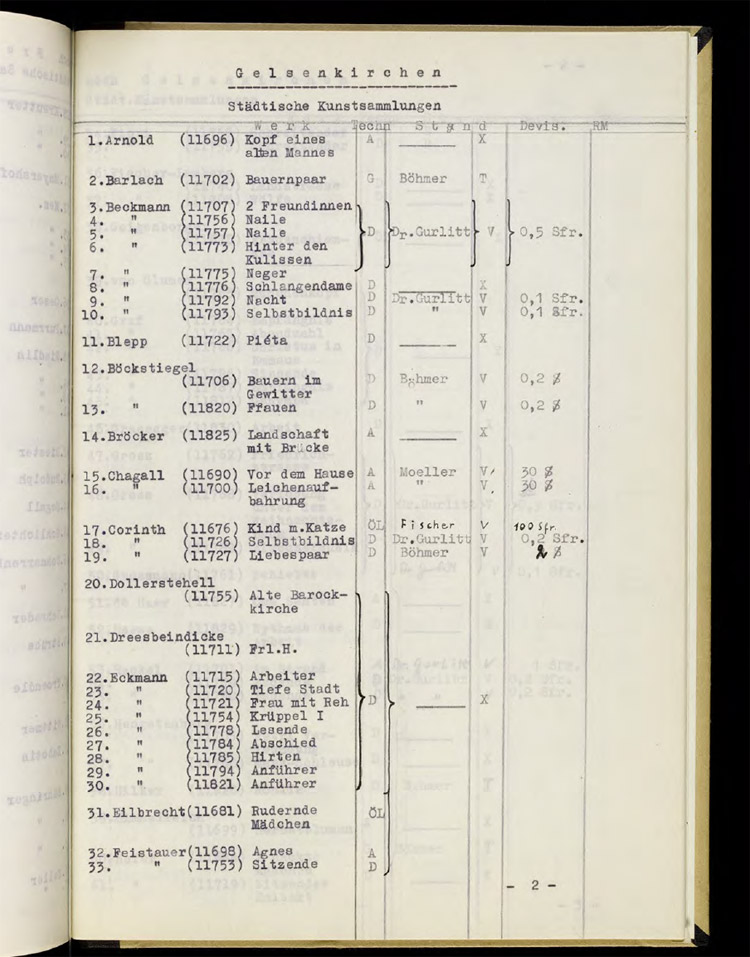 Gelsenkirchen
Städtische Kunstsammlungen
Werk Techn Stand Devis. RM
1.Arnold (11696) Kopf eines A ______ X
alten Mannes
2.Barlach (11702) Bauernpaar G Böhmer T
3.Beckmann (11707) 2 Freundinnen
4. " (11756) Naile
5. " (11757) Naile D Dr.Gurlitt V 0,5 Sfr.
6. " (11773) Hinter den
Kulissen
7. " (11775) Neger
8. " (11776) Schlangendame D ______ X
9. " (11792) Nacht D Dr.Gurlitt V 0,1 Sfr.
10. " (11793) Selbstbildnis D " V 0,1 Sfr.
11.Blepp (11722) Piéta D ______ X
12.Böckstiegel
(11706) Bauern im D Böhmer V 0,2 $
Gewitter
13. " (11820) Frauen D " V 0,2 $
14.Bröcker (11825) Landschaft A ______ X
mit Brücke
15.Chagall (11690) Vor dem Hause A Moeller V 30 $
16. " (11700) Leichenauf- A " V 30 $
bahrung
17.Corinth (11676) Kind m.Katze ÖL Fischer V 100 Sfr.
18. " (11726) Selbstbildnis D Dr.Gurlitt V 0,2 Sfr.
19. " (11727) Liebespaar D Böhmer V 2 $
20.Dollerstehell
(11755) Alte Barock-
kirche
21.Dreesbeindicke
(11711) Frl.H.
22.Eckmann (11715) Arbeiter
23. " (11720) Tiefe Stadt
24. " (11721) Frau mit Reh D ______ X
25. " (11754) Krüppel I
26. " (11778) Lesende
27. " (11784) Abschied
28. " (11785) Hirten
29. " (11794) Anführer
30. " (11821) Anführer
31.Eilbrecht(11681) Rudernde ÖL
Mädchen
32.Feistauer(11698) Agnes A
33. " (11753) Sitzende D
- 2 -